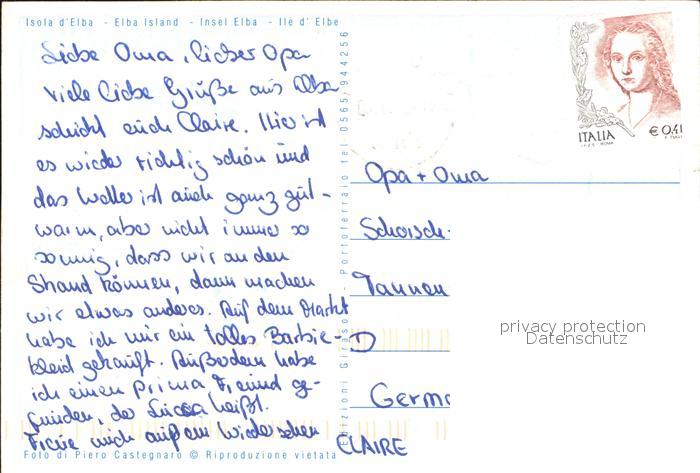 Isola d'Elba - Elba Island - Insel Elba - Ile d' Elbe
Liebe Oma, lieber Opa
Viele liebe Grüße aus Elba
schickt euch Claire. Hier ist
es wieder richtig schön und
das Wetter ist auch ganz gut -
warm, aber nicht immer so
sonnig, dass wir an den
Strand können, dann machen
wir etwas anderes. Auf dem Markt
habe ich mir ein tolles Barbie-
kleid gekauft. Außerdem habe
ich einen prima Freund ge-
funden, der Lucca heißt.
Freue mich auf ein Wiedersehen
CLAIRE
Foto di Piero Castegnaro © Riproduzione vietata
Edizioni Giraso - Portoferraio tel 0565/944256
ITALIA
€ 0,41
Opa + Oma
Schorsch
Tannen
D
Germ
privacy protection
Datenschutz